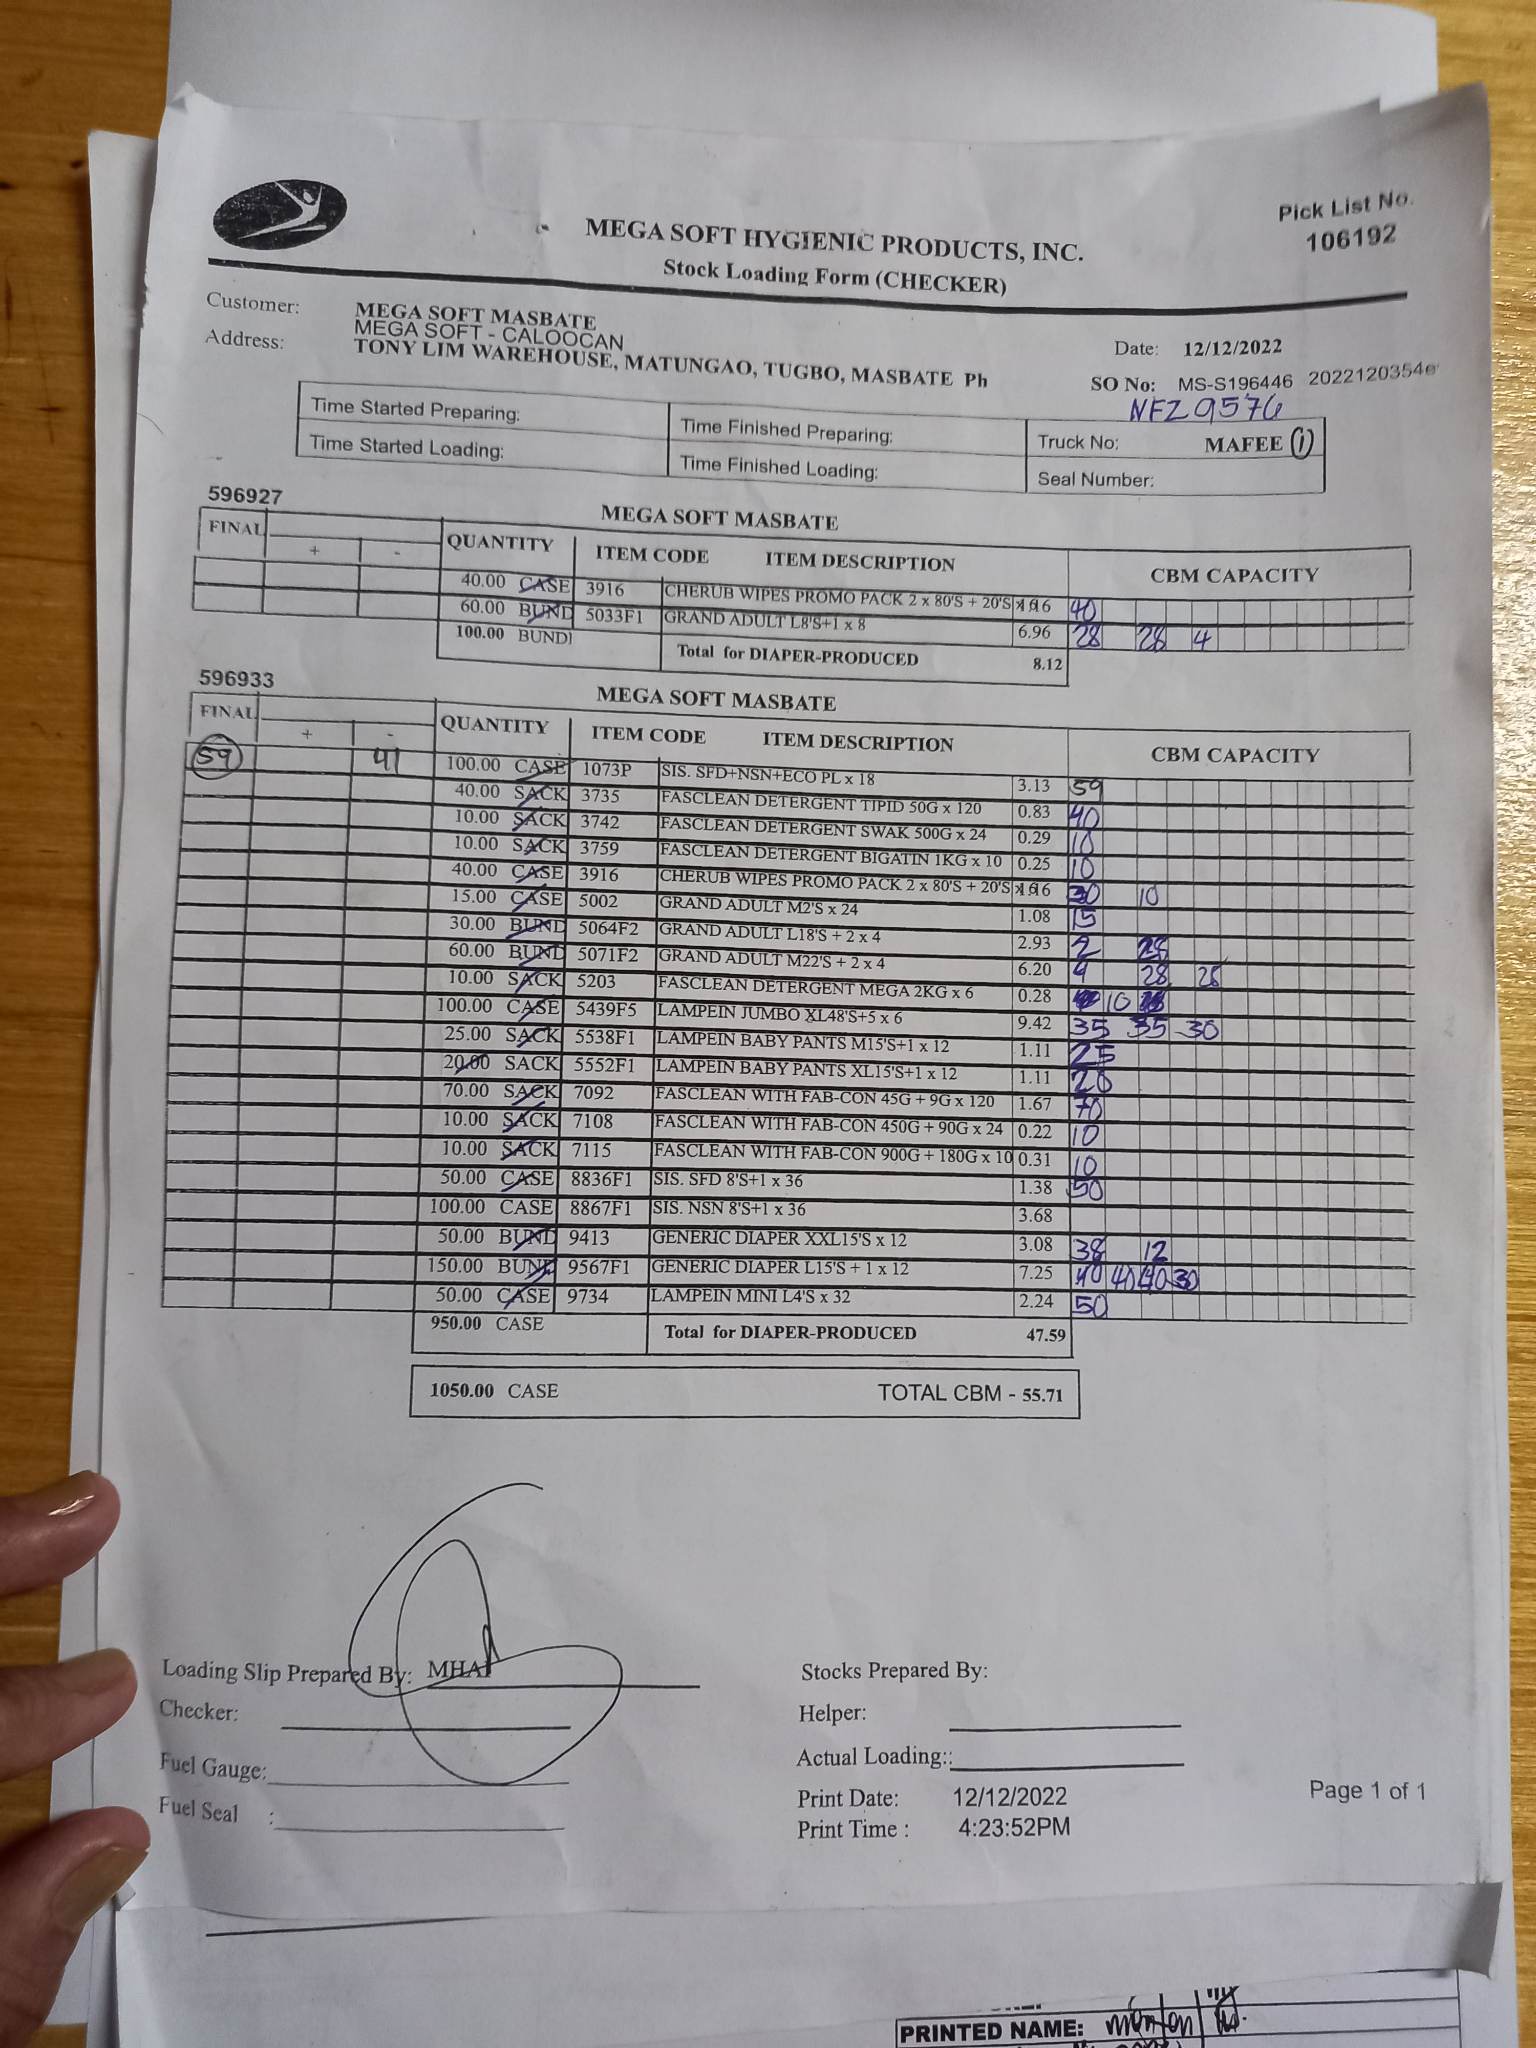 Pick List No.
106192
MEGA SOFT HYGIENIC PRODUCTS, INC.
Stock Loading Form (CHECKER)
Customer: MEGA SOFT MASBATE
MEGA SOFT - CALOOCAN
Address: TONY LIM WAREHOUSE, MATUNGAO, TUGBO, MASBATE Ph
Date: 12/12/2022
SO No: MS-S196446 2022120354e
NFZ 9576
Time Started Preparing: Time Finished Preparing: Truck No: MAFEE 1
Time Started Loading: Time Finished Loading: Seal Number:
596927 MEGA SOFT MASBATE
FINAL + - QUANTITY ITEM CODE ITEM DESCRIPTION CBM CAPACITY
40.00 CASE 3916 CHERUB WIPES PROMO PACK 2 x 80'S + 20'S 40
60.00 BUND 5033F1 GRAND ADULT L8'S+1 x 8 6.96 28 28 4
100.00 BUNDI Total for DIAPER-PRODUCED 8.12
596933 MEGA SOFT MASBATE
FINAL + - QUANTITY ITEM CODE ITEM DESCRIPTION CBM CAPACITY
59 41 100.00 CASE 1073P SIS. SFD+NSN+ECO PL x 18 3.13 59
40.00 SACK 3735 FASCLEAN DETERGENT TIPID 50G x 120 0.83 40
10.00 SACK 3742 FASCLEAN DETERGENT SWAK 500G x 24 0.29 10
10.00 SACK 3759 FASCLEAN DETERGENT BIGATIN 1KG x 10 0.25 10
40.00 CASE 3916 CHERUB WIPES PROMO PACK 2 x 80'S + 20'S 30 10
15.00 CASE 5002 GRAND ADULT M2'S x 24 1.08 15
30.00 BUND 5064F2 GRAND ADULT L18'S + 2 x 4 2.93 2 28
60.00 BUND 5071F2 GRAND ADULT M22'S + 2 x 4 6.20 4 28 28
10.00 SACK 5203 FASCLEAN DETERGENT MEGA 2KG x 6 0.28 10
100.00 CASE 5439F5 LAMPEIN JUMBO XL48'S+5 x 6 9.42 35 35 30
25.00 SACK 5538F1 LAMPEIN BABY PANTS M15'S+1 x 12 1.11 25
20.00 SACK 5552F1 LAMPEIN BABY PANTS XL15'S+1 x 12 1.11 20
70.00 SACK 7092 FASCLEAN WITH FAB-CON 45G + 9G x 120 1.67 70
10.00 SACK 7108 FASCLEAN WITH FAB-CON 450G + 90G x 24 0.22 10
10.00 SACK 7115 FASCLEAN WITH FAB-CON 900G + 180G x 10 0.31 10
50.00 CASE 8836F1 SIS. SFD 8'S+1 x 36 1.38 50
100.00 CASE 8867F1 SIS. NSN 8'S+1 x 36 3.68
50.00 BUND 9413 GENERIC DIAPER XXL15'S x 12 3.08 38 12
150.00 BUND 9567F1 GENERIC DIAPER L15'S + 1 x 12 7.25 40 40 40 30
50.00 CASE 9734 LAMPEIN MINI L4'S x 32 2.24 50
950.00 CASE Total for DIAPER-PRODUCED 47.59
1050.00 CASE TOTAL CBM - 55.71
Loading Slip Prepared By: Stocks Prepared By:
Checker: Helper:
Fuel Gauge: Actual Loading::
Fuel Seal : Print Date: 12/12/2022
Print Time : 4:23:52PM
Page 1 of 1
PRINTED NAME: